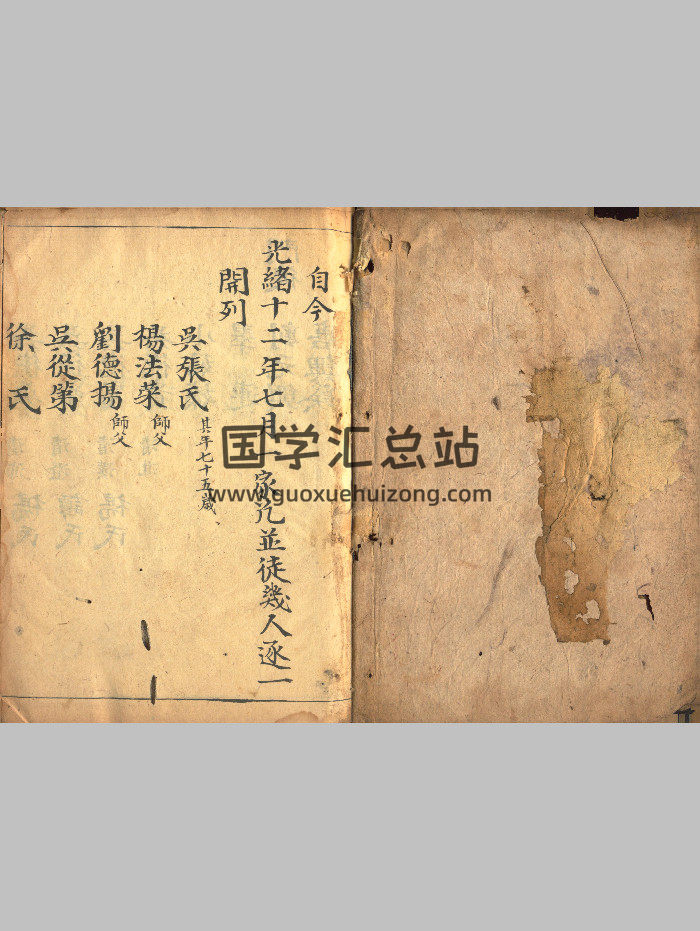 自今
光緒十二年七月一家凢並徒幾人逐一
開列
吳張氏
其年七十五歲
楊法榮
師父
劉德揚
師父
吳從第
徐氏
国学汇总站
www.guoxuehuizong.com